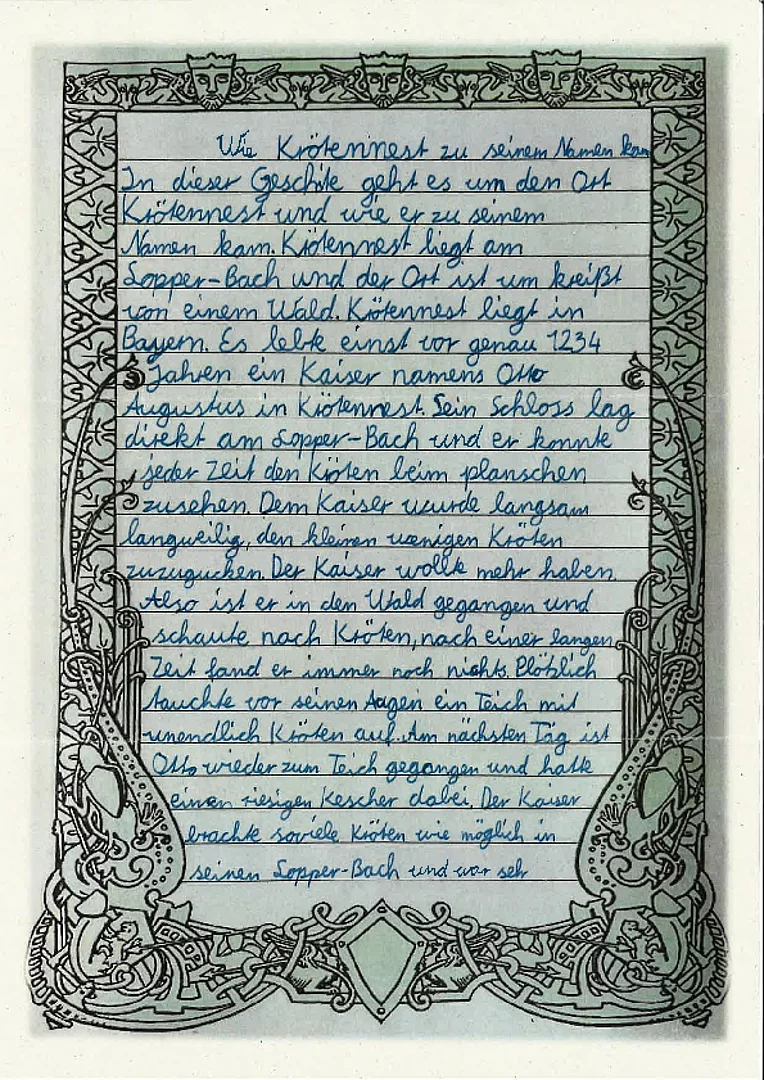 Wie Krötennest zu seinem Namen kam
In dieser Geschite geht es um den Ort
Krötennest und wie er zu seinem
Namen kam. Krötennest liegt am
Sopper-Bach und der Ort ist um kreißt
von einem Wald. Krötennest liegt in
Bayern. Es lebte einst vor genau 1234
Jahren ein Kaiser namens Otto
Augustus in Krötennest. Sein Schloss lag
direkt am Sopper-Bach und er konnte
jeder Zeit den Kröten beim planschen
zusehen. Dem Kaiser wurde langsam
langweilig, den kleinen wenigen Kröten
zuzugucken. Der Kaiser wollte mehr haben.
Also ist er in den Wald gegangen und
schaute nach Kröten, nach einer langen
Zeit fand er immer noch nichts. Plötzlich
tauchte vor seinen Augen ein Teich mit
unendlich Kröten auf. Am nächsten Tag ist
Otto wieder zum Teich gegangen und hatte
einen riesigen Kescher dabei. Der Kaiser
brachte soviele Kröten wie möglich in
seinen Sopper-Bach und war sehr